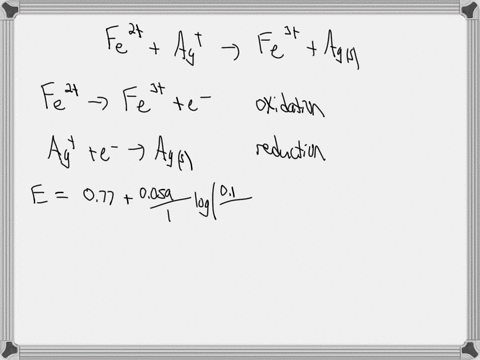 Fe²⁺ + Ag⁺ → Fe³⁺ + Ag(s)
Fe²⁺ → Fe³⁺ + e⁻ oxidation
Ag⁺ + e⁻ → Ag(s) reduction
E = 0.77 + 0.059/1 log(0.1/